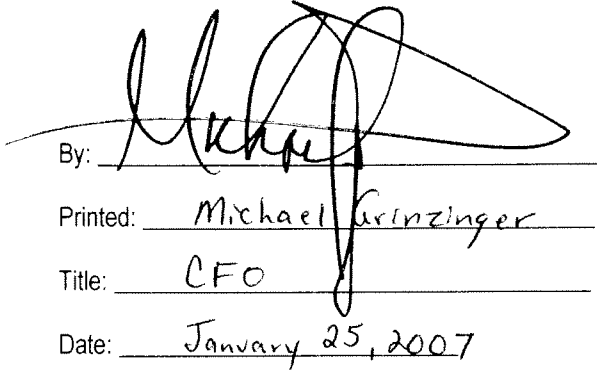 By: Michael
Printed: Michael Grinzinger
Title: CFO
Date: January 25, 2007